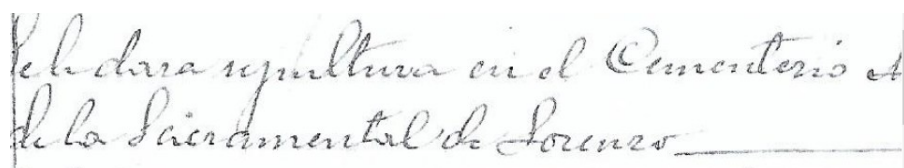 se le dara sepultura en el Cementerio
de la Sacramental de Lorenzo